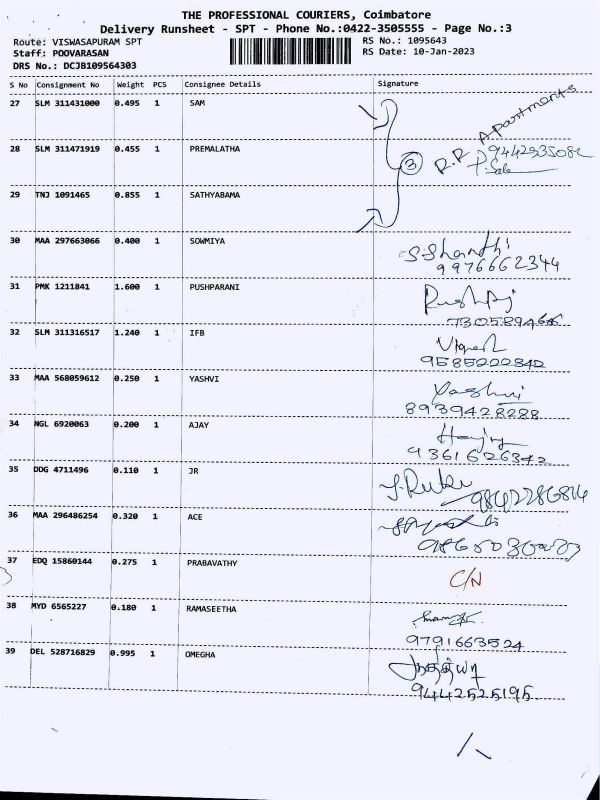 THE PROFESSIONAL COURIERS, Coimbatore
Delivery Runsheet - SPT - Phone No.:0422-3505555 - Page No.:3
Route: VISWASAPURAM SPT RS No.: 1095643
Staff: POOVARASAN RS Date: 10-Jan-2023
DRS No.: DCJB109564303
S No Consignment No Weight PCS Consignee Details Signature
27 SLM 311431000 0.495 1 SAM
R.R Apartments
28 SLM 311471919 0.455 1 PREMALATHA
3
29 TNJ 1091465 0.855 1 SATHYABAMA
30 MAA 297663066 0.400 1 SOWMIYA S.Shanthi
9976662344
31 PMK 1211841 1.600 1 PUSHPARANI
32 SLM 311316517 1.240 1 IFB
9585222842
33 MAA 568059612 0.250 1 YASHVI Yashvi
8939428288
34 NGL 6920063 0.200 1 AJAY
9361626342
35 DDG 4711496 0.110 1 JR
36 MAA 296486254 0.320 1 ACE
37 EDQ 15860144 0.275 1 PRABAVATHY C/N
38 MYD 6565227 0.180 1 RAMASEETHA
9791663524
39 DEL 528716829 0.995 1 OMEGHA
9442525195